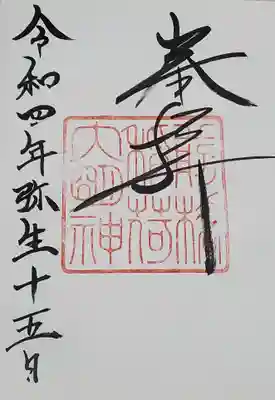 奉拝
稲荷
大明神
令和四年弥生十五日